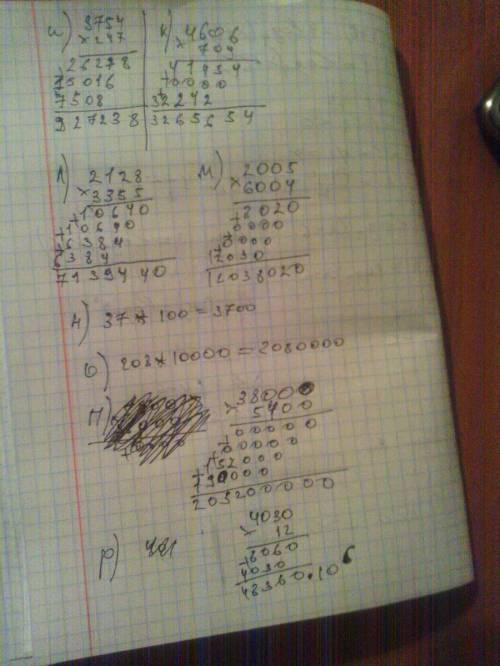 и) 3754
× 247
26278
+ 15016
7508
927238
к) 4606
× 709
41454
+ 0000
32242
3265654
л) 2128
× 3355
10640
+ 10640
+ 6384
6384
7139440
м) 2005
× 6004
8020
+ 0000
+ 0000
12030
12038020
н) 37 * 100 = 3700
о) 208 * 10000 = 2080000
п) 38000
× 5400
00000
+ 00000
+ 152000
190000
205200000
р)
4030
× 12
8060
+ 4030
48360 · 10⁶